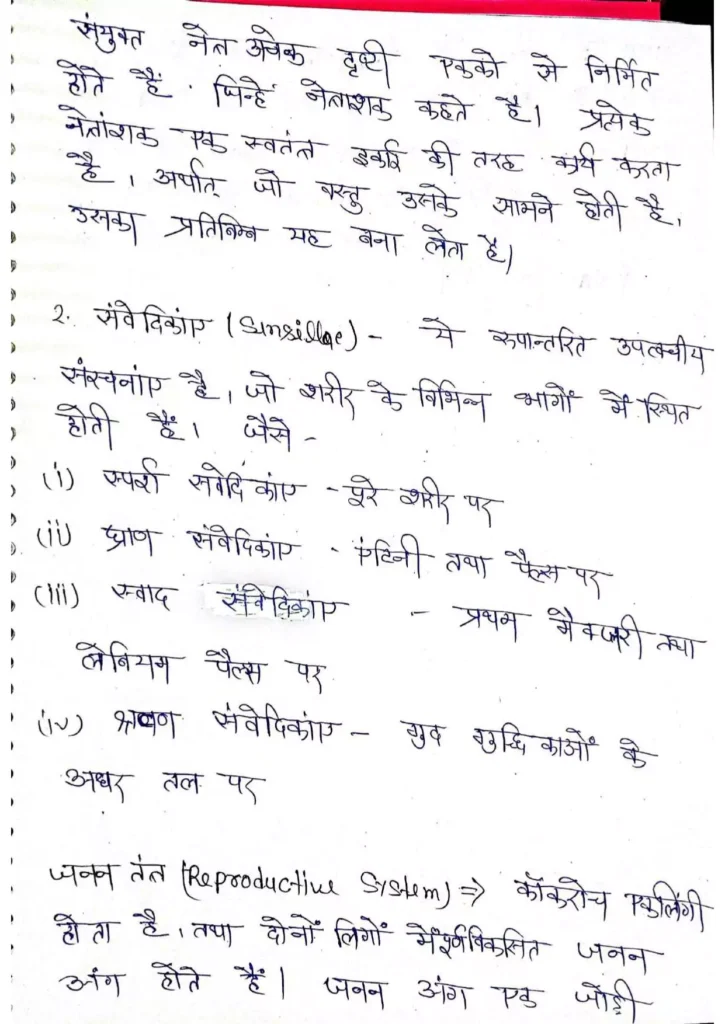 संयुक्त नेत्र अनेक दृष्टी एकको से निर्मित
होते हैं। जिन्हें नेत्राशक कहते है। प्रत्येक
नेत्रांशक एक स्वतंत्र इकाई की तरह कार्य करता
है, अर्थात् जो वस्तु उसके सामने होती है,
उसका प्रतिबिम्ब यह बना लेता है।
2. संवेदिकांए (Sensillae) - ये रुपान्तरित उपत्वचीय
संरचनांए है, जो शरीर के विभिन्न भागों में स्थित
होती हैं। जैसे -
(i) स्पर्श संवेदिकांए - पूरे शरीर पर
(ii) घ्राण संवेदिकांए - एंटिनी तथा पैल्स पर
(iii) स्वाद संवेदिकांए - प्रथम मैक्जरी तथा
लेबियम पैल्स पर
(iv) श्रवण संवेदिकांए - गुद लुद्धिकाओं के
अधर तल पर
जनन तंत्र (Reproductive System) ⇒ कॉकरोच एकलिंगी
होता है, तथा दोनों लिगों में पूर्णविकसित जनन
अंग होते हैं। जनन अंग एक जोड़ी